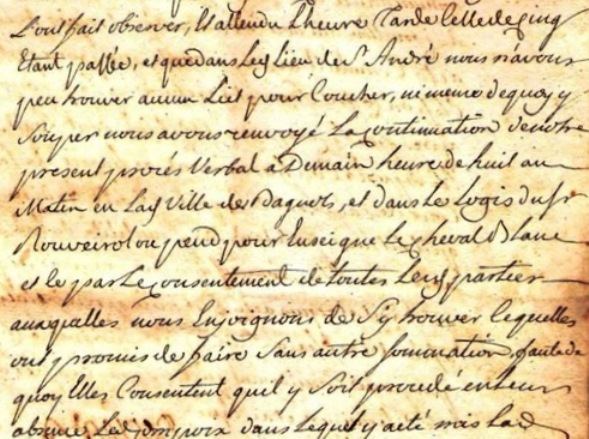 L'ont fait observer, Et attendu L'heure Tarde Celle de Cinq
Etant passée, et que dans Led Lieu de St André nous n'avons
peu trouver aucun Lit pour Coucher, ni meme dequoy y
Souper nous avons renvoyé La Continuation de notre
present procés Verbal a Demain heure de huit au
Matin en Lad Ville de Bagnols, et dans Le Logis du Sr
Rouveirol ou pend pour Enseigne Le Cheval Blanc
et le par Le Consentement de toutes Lesd parties
auxquelles nous Enjoignons de Sy trouver Lequelles
ont promis de faire Sans autre Sommation, faute de
quoy Elles Consentent quil y Soit procedé en leur
absence Led Compoix dans Lequel y a eté mis Lad